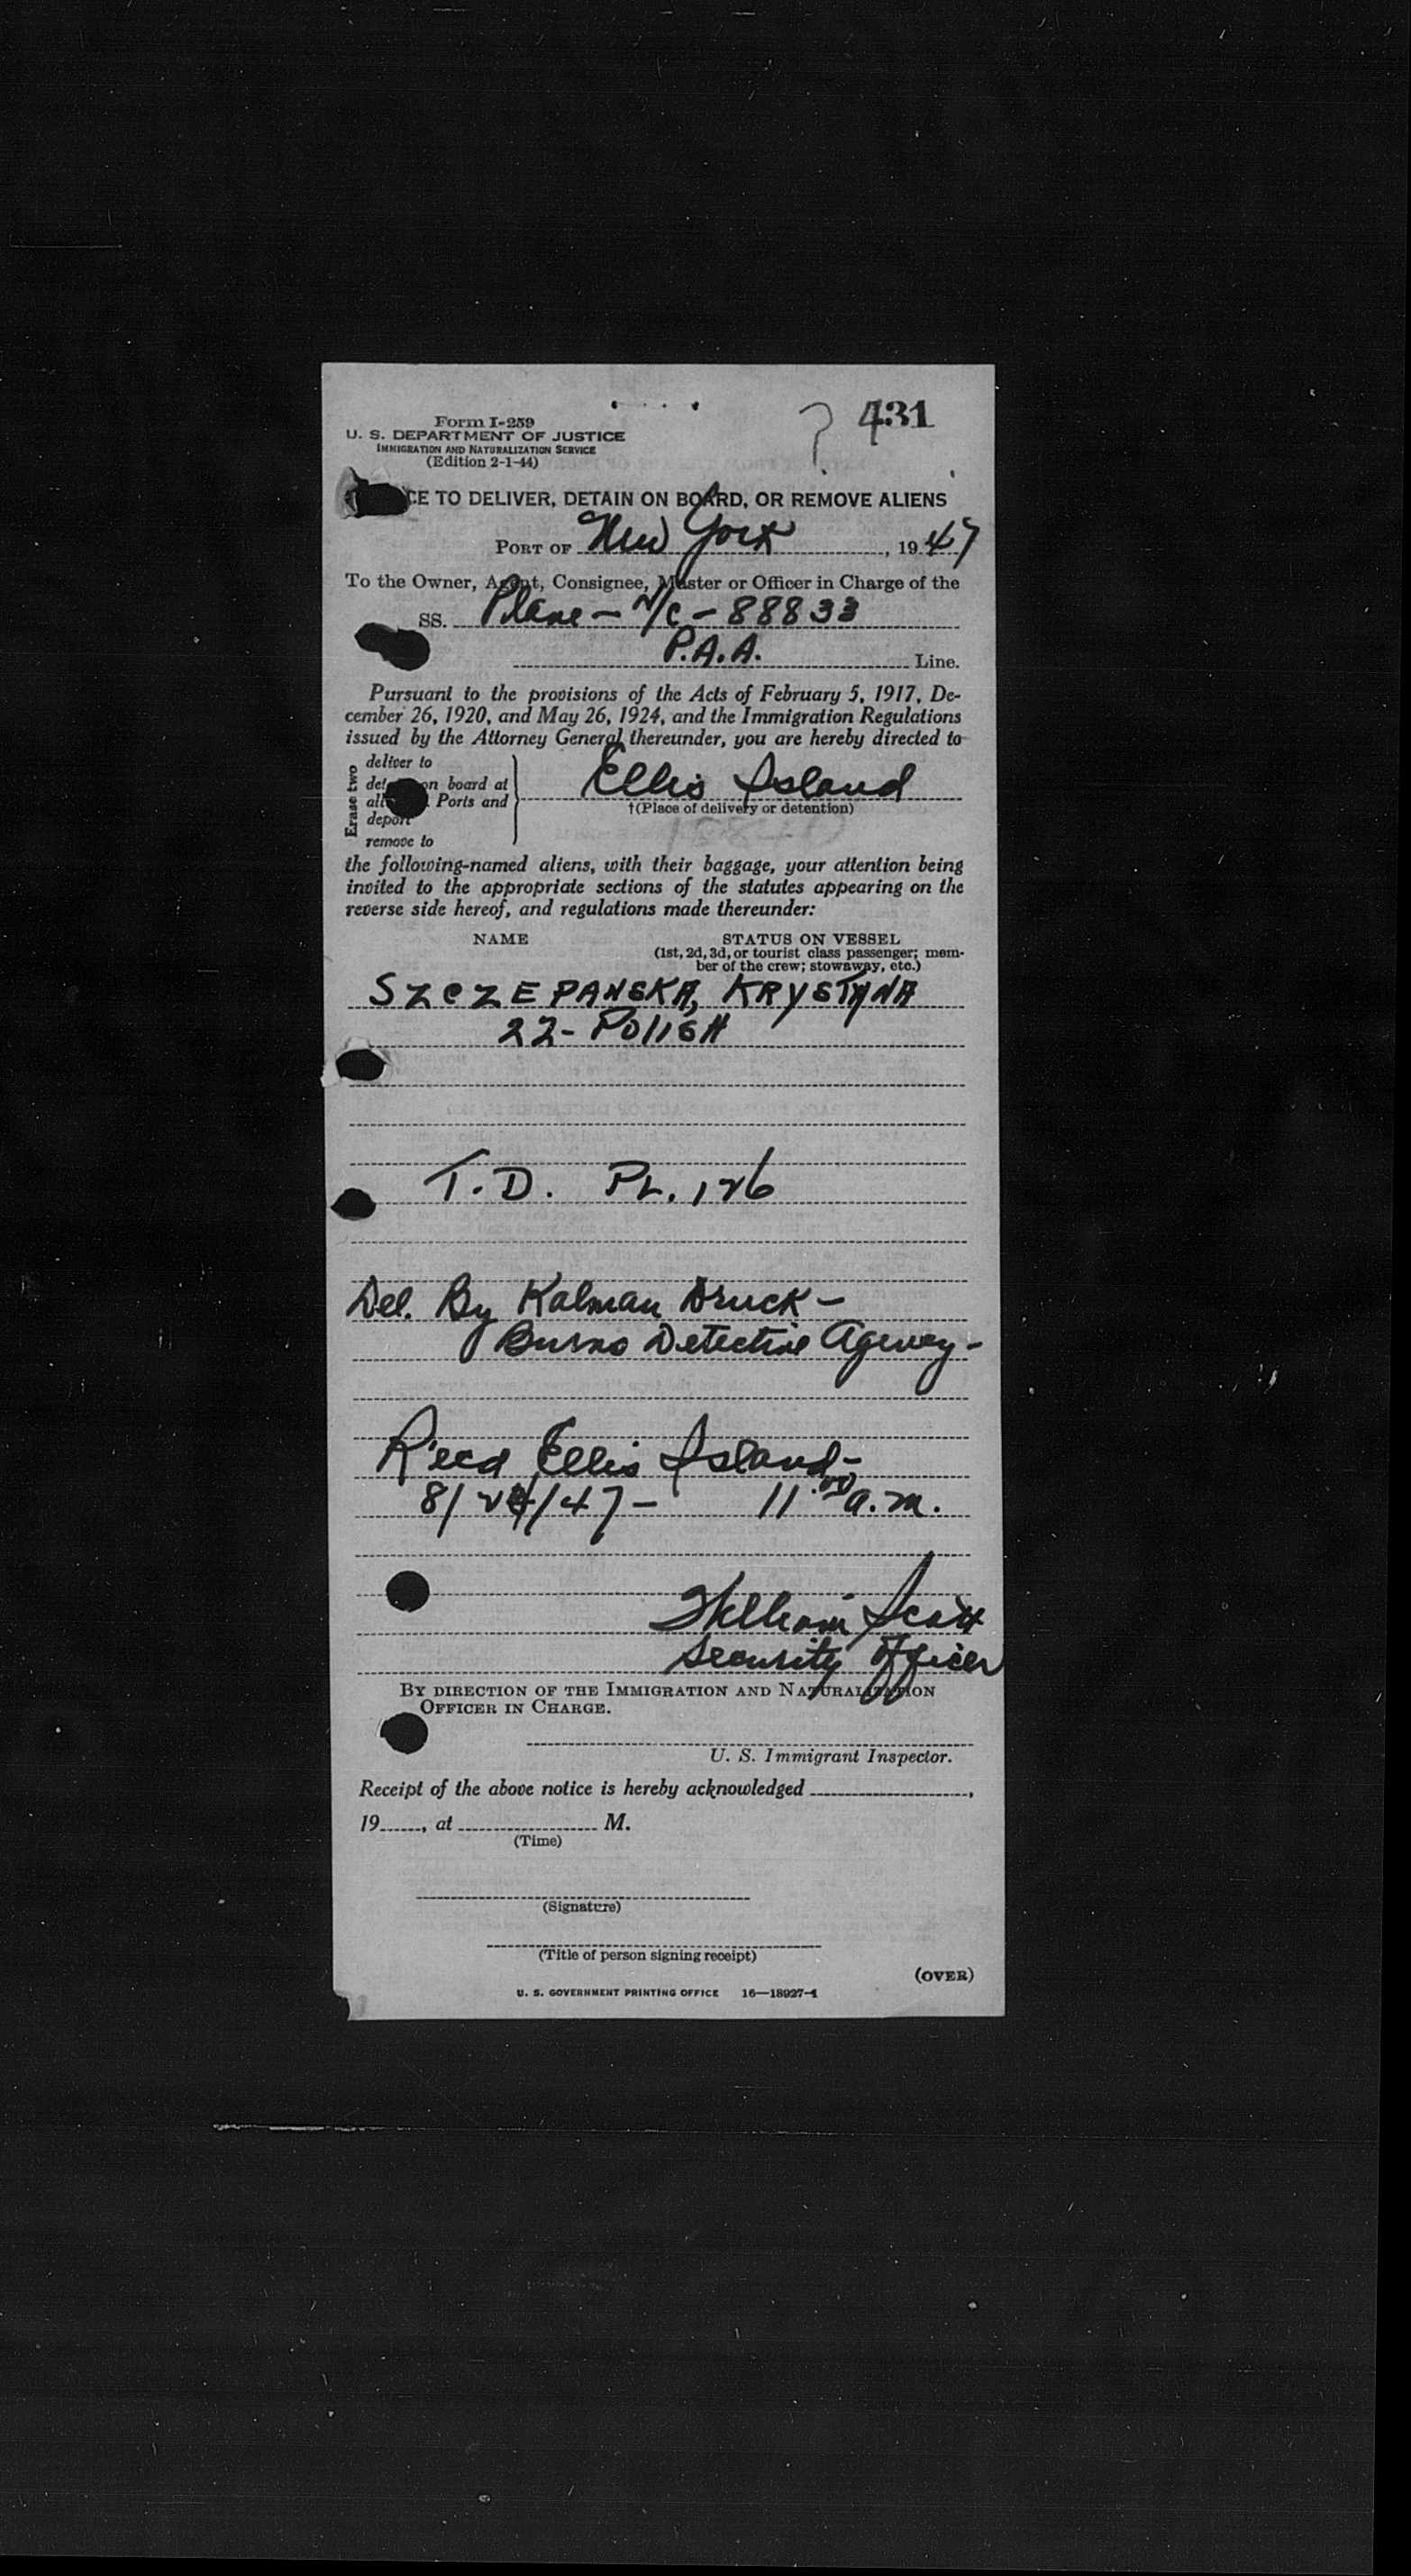 431
Form I-259
U. S. DEPARTMENT OF JUSTICE
IMMIGRATION AND NATURALIZATION SERVICE
(Edition 2-1-44)
CE TO DELIVER, DETAIN ON BOARD, OR REMOVE ALIENS
PORT OF New York, 1947
To the Owner, Agent, Consignee, Master or Officer in Charge of the
SS. Plane - N/C - 88833
P.A.A. Line.
Pursuant to the provisions of the Acts of February 5, 1917, De-
cember 26, 1920, and May 26, 1924, and the Immigration Regulations
issued by the Attorney General thereunder, you are hereby directed to
Erase two
deliver to
det on board at
all Ports and
deport
remove to
Ellis Island
†(Place of delivery or detention)
the following-named aliens, with their baggage, your attention being
invited to the appropriate sections of the statutes appearing on the
reverse side hereof, and regulations made thereunder:
NAME
STATUS ON VESSEL
(1st, 2d, 3d, or tourist class passenger; mem-
ber of the crew; stowaway, etc.)
SZCZEPANSKA, KRYSTYNA
22 - POlISH
T.D. PL. 126
Del. By Kalman Druck -
Burns Detective Agency -
R'ecd Ellis Island -
8/24/47 - 11:00 a.m.
William Scott
Security Officer
BY DIRECTION OF THE IMMIGRATION AND NATURALIZATION
OFFICER IN CHARGE.
U. S. Immigrant Inspector.
Receipt of the above notice is hereby acknowledged ,
19 , at M.
(Time)
(Signature)
(Title of person signing receipt)
(OVER)
U. S. GOVERNMENT PRINTING OFFICE 16—18927-1